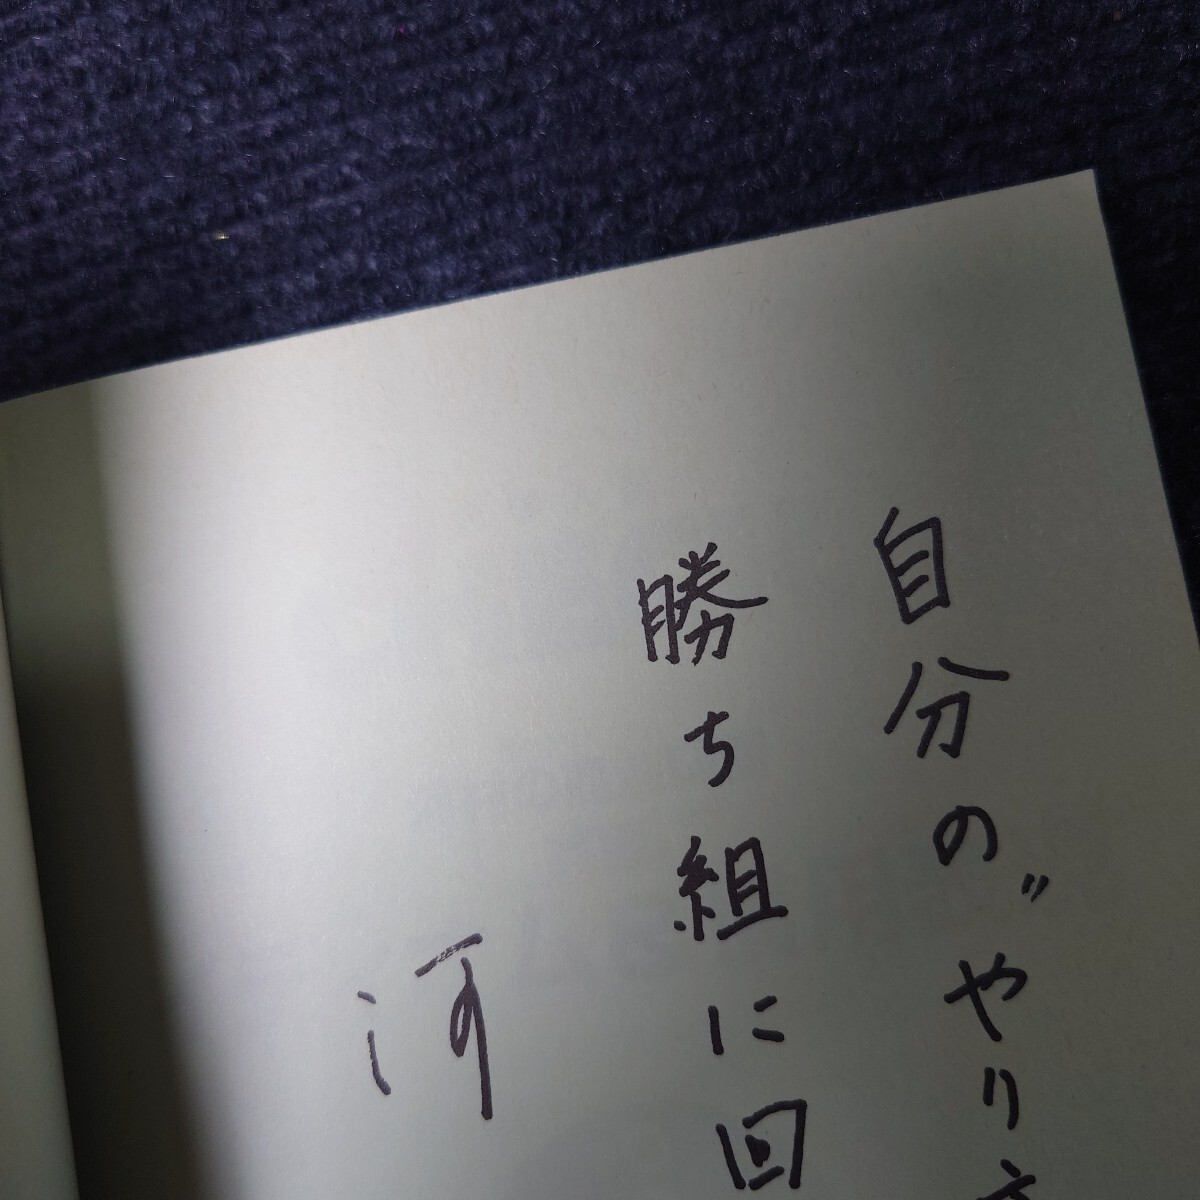 自分の〝やり
勝ち組に回
河